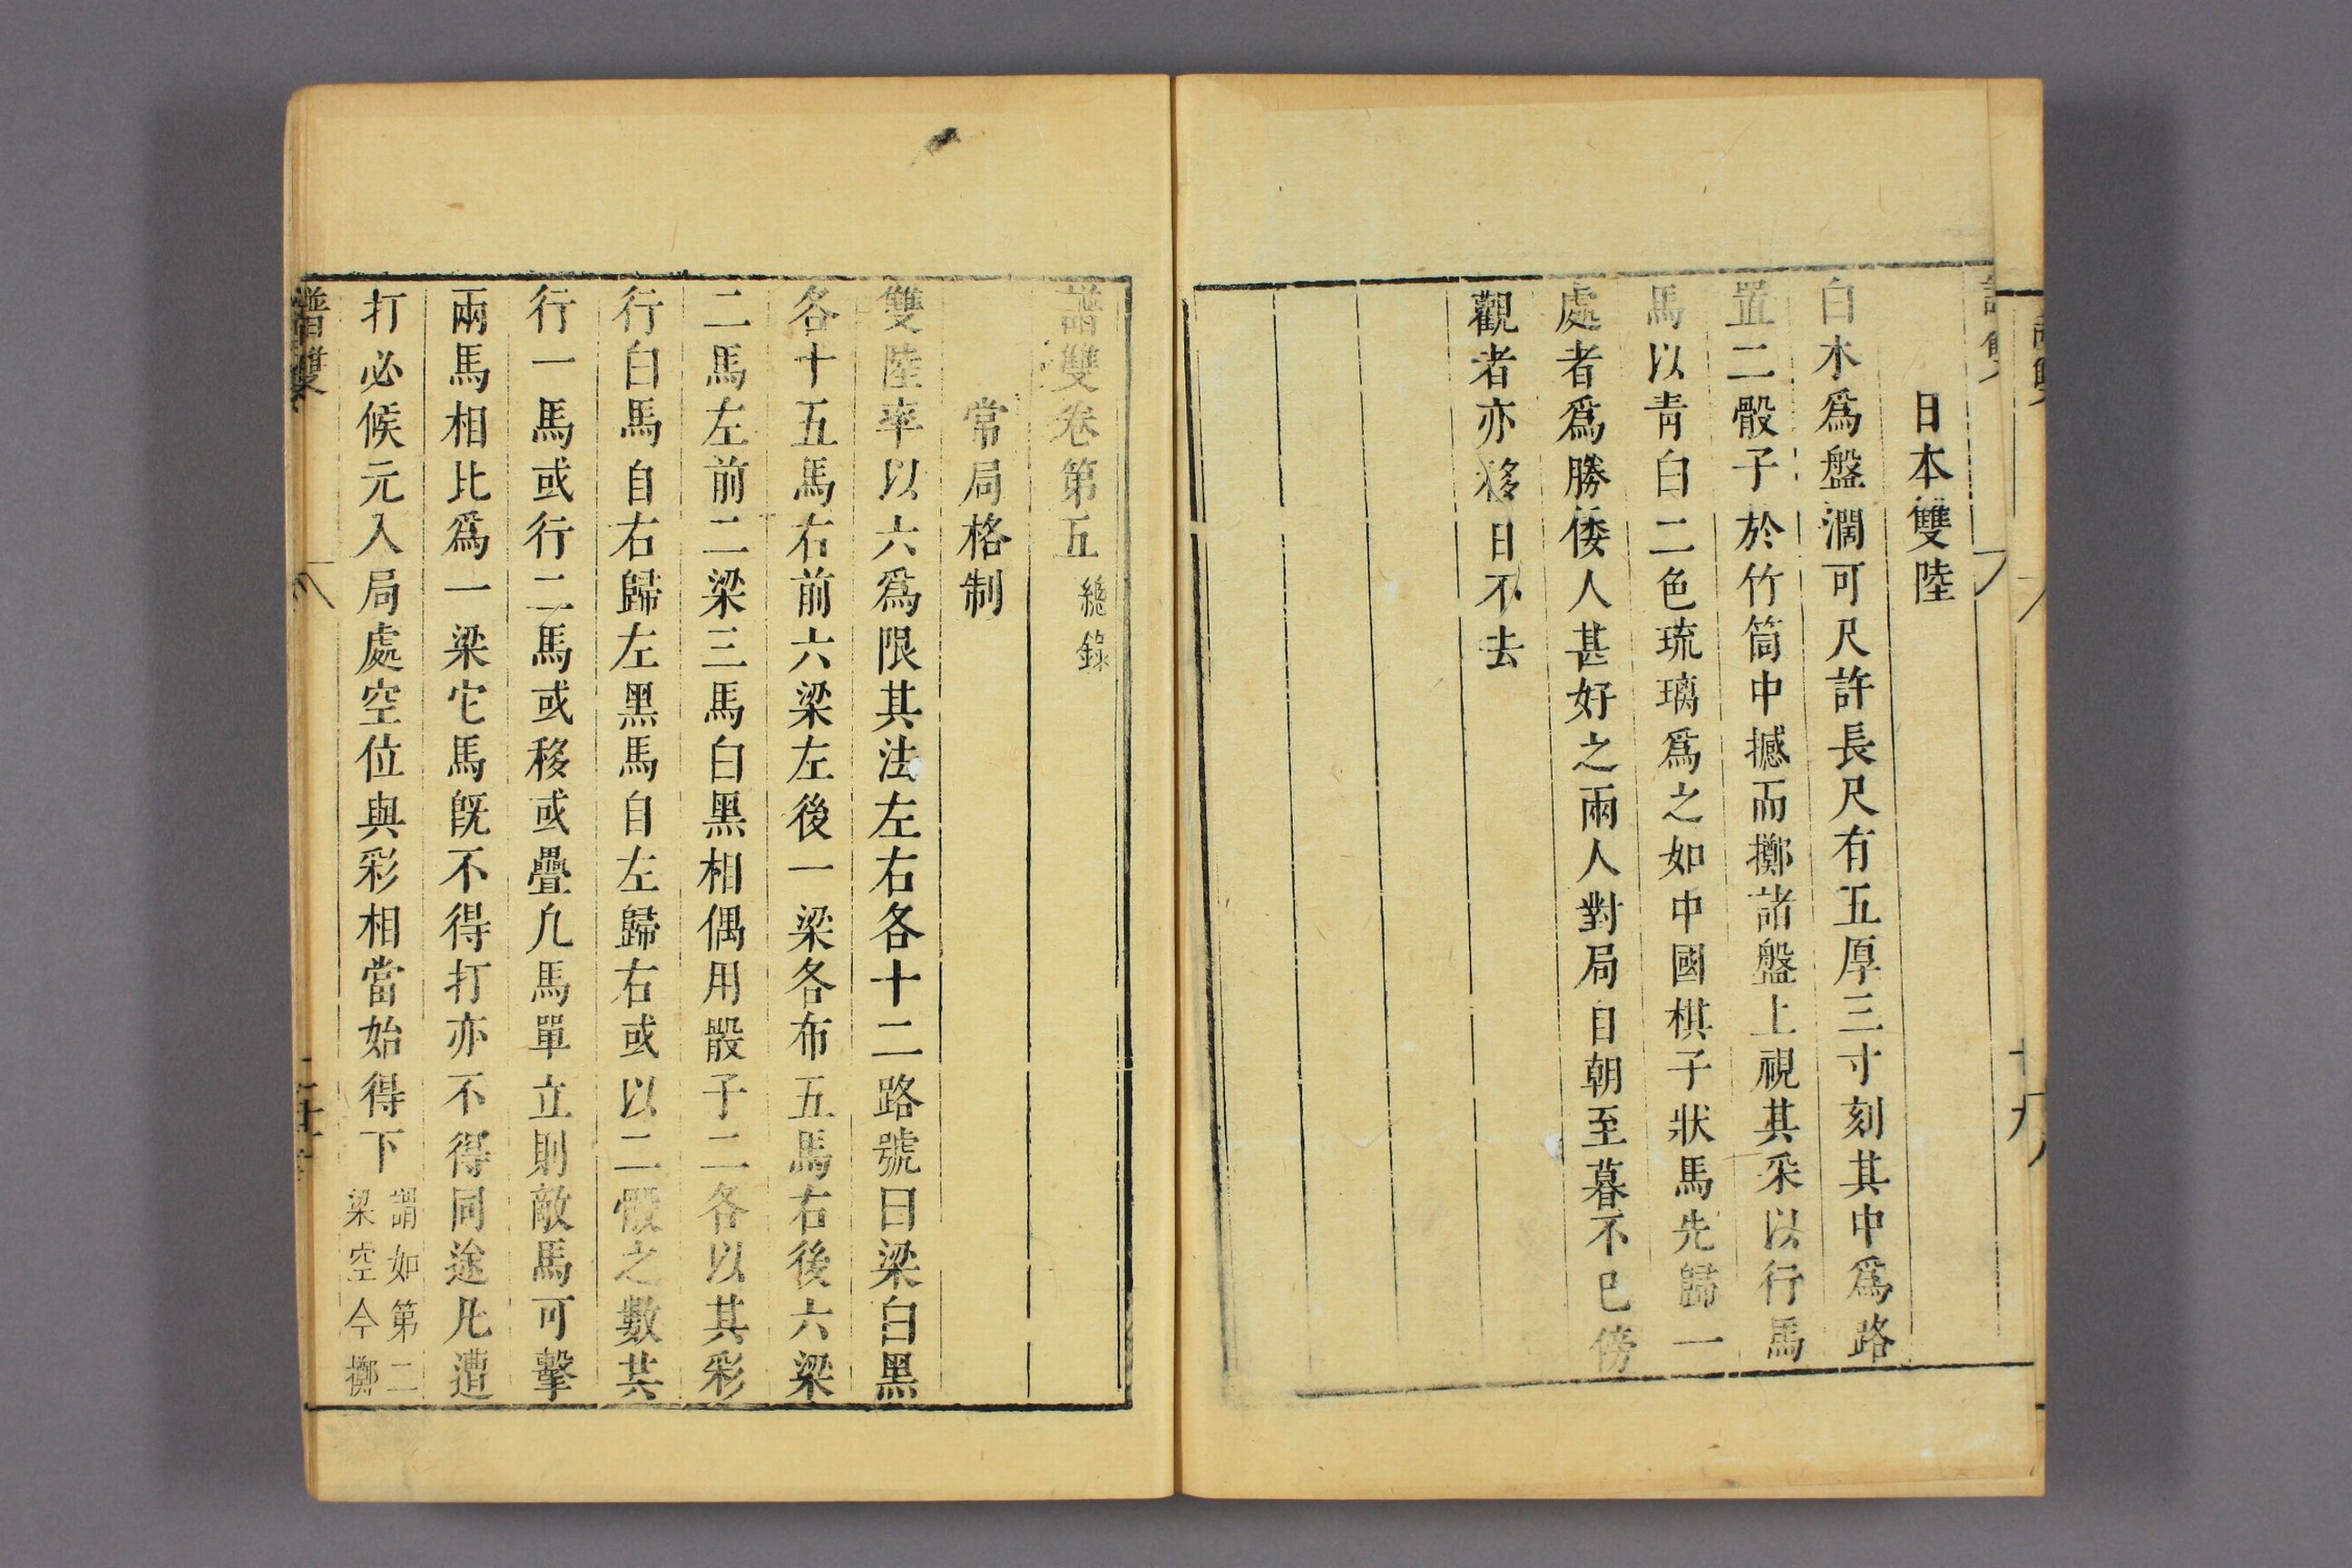 日本雙陸
白木爲盤濶可尺許長尺有五厚三寸刻其中爲路
置二骰子於竹筒中撼而擲諸盤上視其采以行馬
馬以青白二色琉璃爲之如中國棋子狀馬先歸一
處者爲勝倭人甚好之兩人對局自朝至暮不已傍
觀者亦移日不去
譜雙卷第五 總錄
常局格制
雙陸率以六爲限其法左右各十二路號曰梁白黑
各十五馬右前六梁左後一梁各布五馬右後六梁
二馬左前二梁三馬白黑相偶用骰子二各以其彩
行白馬自右歸左黑馬自左歸右或以二骰之數共
行一馬或行二馬或移或疊凢馬單立則敵馬可擊
兩馬相比爲一梁它馬旣不得打亦不得同途凢遭
打必候元入局處空位與彩相當始得下 謂如第二
梁空今擲
譜雙
二十